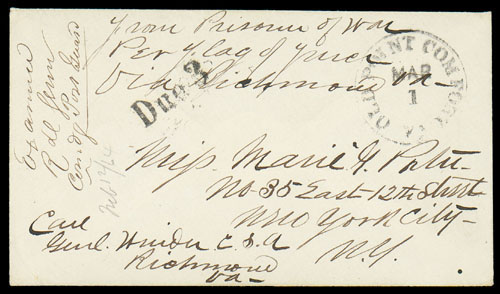 From Prisoner of War
Per Flag of Truce
Via Richmond Va-
Due 3
OLD POINT COMFORT VA.
MAR
1
Examined
Comdg Post
Miss Marie
No 35 East 12th Street
New York City-
N.Y.
Care
Genl. Winder C.S.A
Richmond
Va-